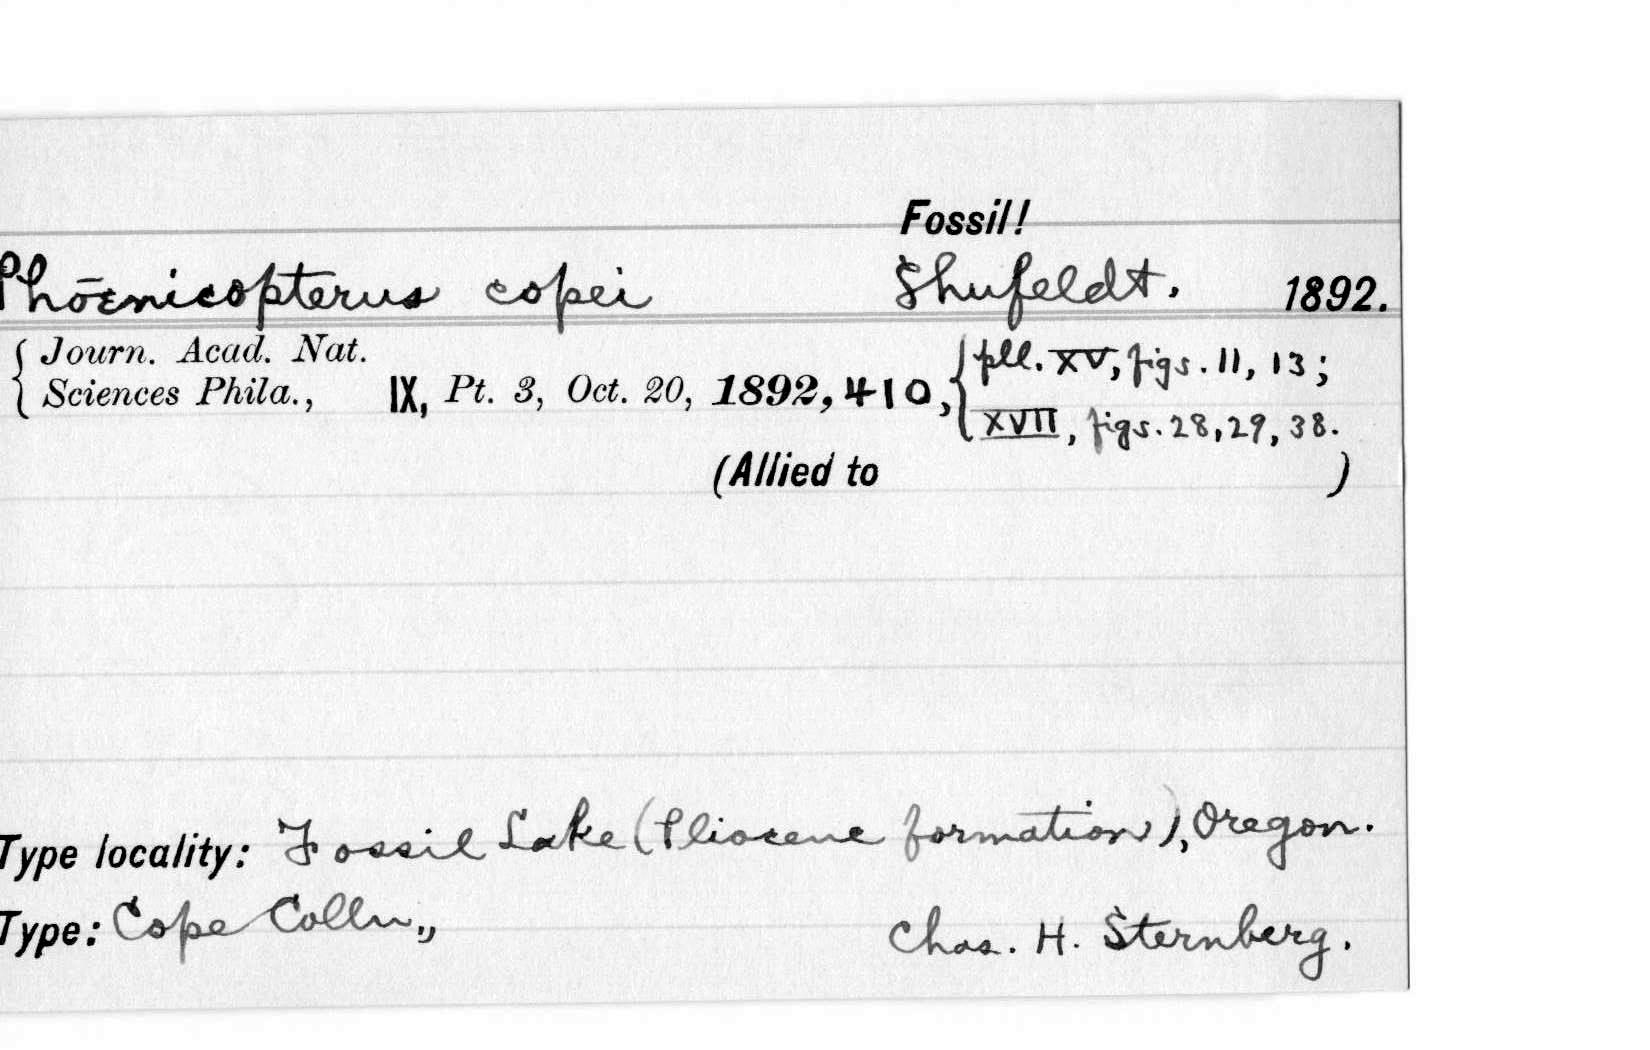 Fossil!
Phoenicopterus copei Shufeldt. 1892.
Journ. Acad. Nat.
Sciences Phila., IX, Pt. 3, Oct. 20, 1892, 410, pll. XV, figs. 11, 13;
XVII, figs. 28, 29, 38.
(Allied to )
Type locality: Fossil Lake (Pliocene formation), Oregon.
Type: Cope Colln., Chas. H. Sternberg.